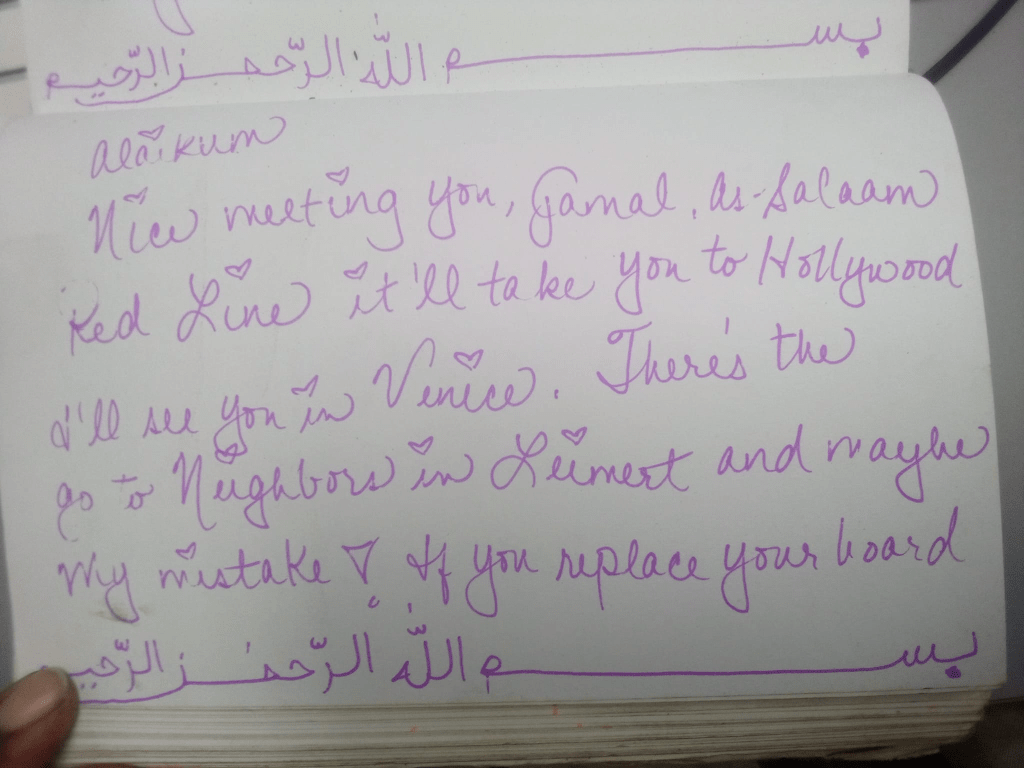 بســـــــــم اللّٰه الرّحمــن الرّحيم
Alaikum
Nice meeting you, Gamal. As-Salaam
Red Line it'll take you to Hollywood
I'll see you in Venice. There's the
go to Neighbors in Leimert and maybe
My mistake! If you replace your board
بســـــــــم اللّٰه الرّحمــن الرّحيم